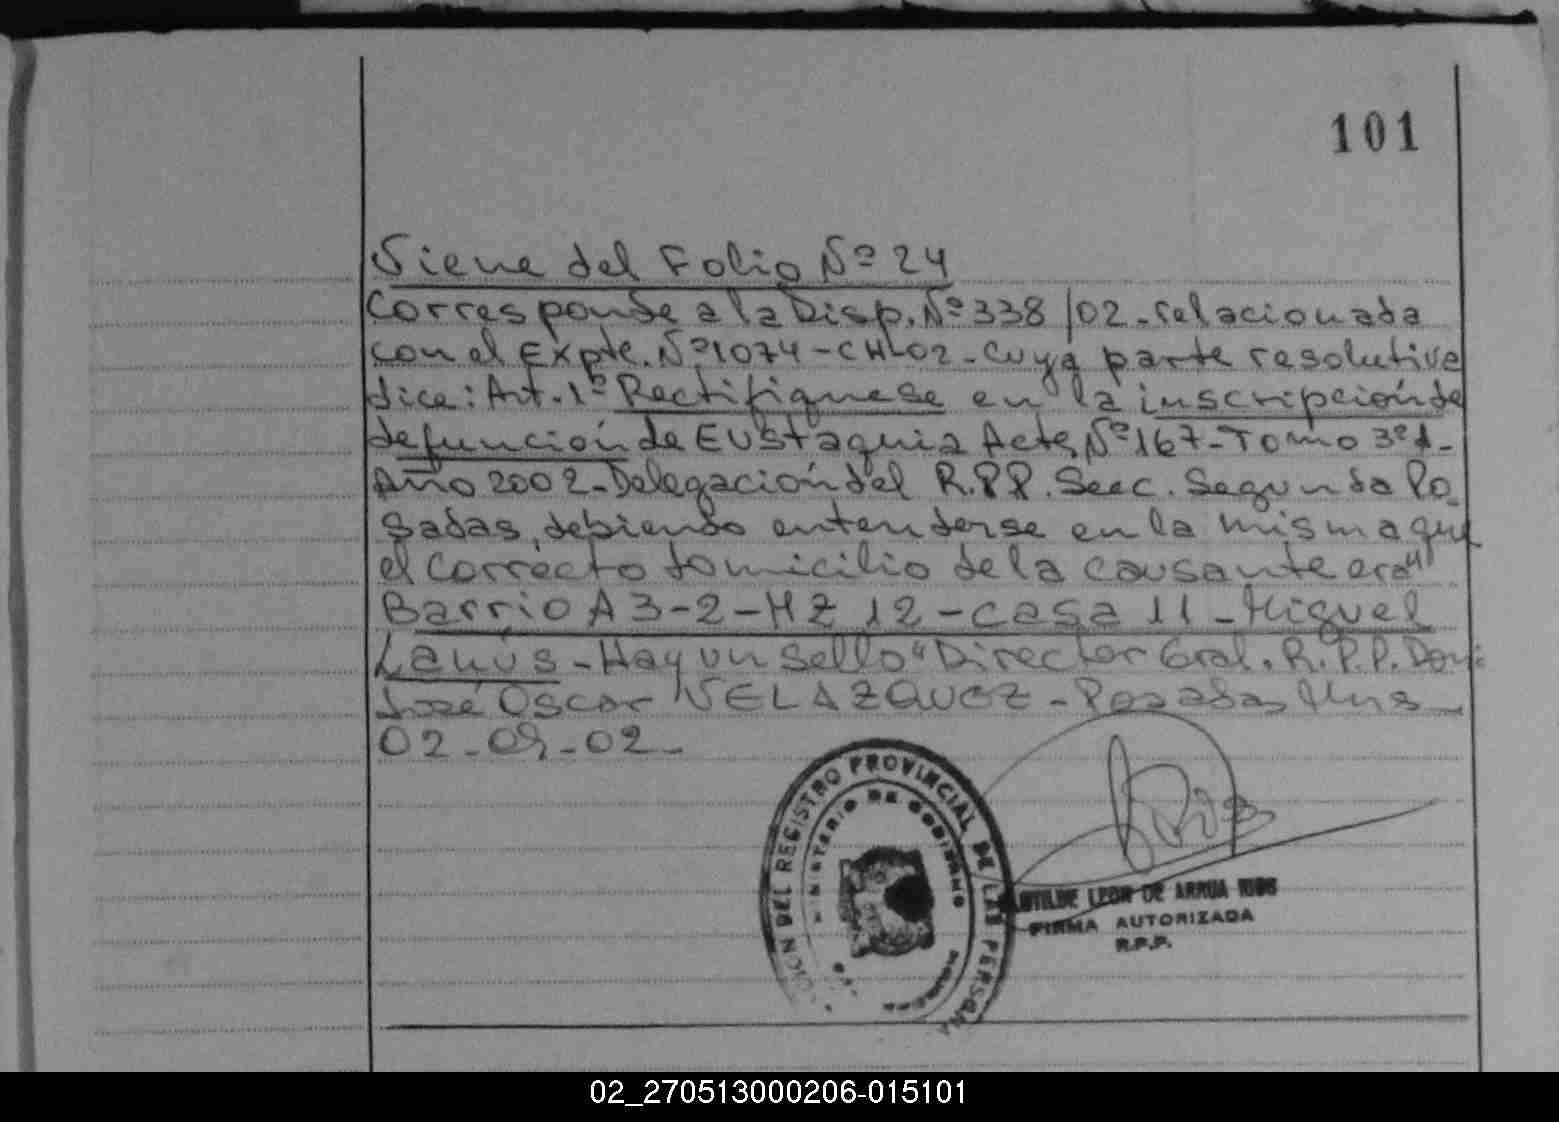 101
Viene del Folio Nº 24
Corresponde a la Disp. Nº 338/02 - relacionada
con el Expte. Nº 1074-CH-02 - Cuya parte resolutiva
dice: Art. 1º Rectifíquese en la inscripción de
defunción de Eustaquia Acta Nº 167 - Tomo 3º
Año 2002 - Delegación del R.P.P. Secc. Segunda Po-
sadas, debiendo entenderse en la misma que
el Correcto domicilio de la causante era "
Barrio A 3-2-MZ 12 - casa 11 - Miguel
Lanús - Hay un sello "Director Gral. R.P.P. Don:
José Oscar VELAZQUEZ - Posadas Mns -
02-09-02 -
DEL REGISTRO PROVINCIAL DE LAS PERSONA
MINISTERIO DE GOBIERNO
LEON DE ARRUA
FIRMA AUTORIZADA
R.P.P.
02_270513000206-015101